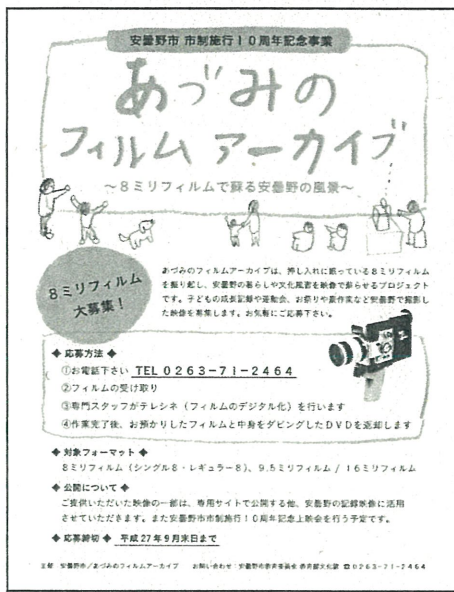 安曇野市 市制施行10周年記念事業
あづみの
フィルム アーカイブ
～8ミリフィルムで蘇る安曇野の風景～
8ミリフィルム
大募集！
あづみのフィルムアーカイブは、押し入れに眠っている8ミリフィルム
を掘り起し、安曇野の暮らしや文化風習を映像で蘇らせるプロジェクト
です。子どもの成長記録や運動会、お祭りや農作業など安曇野で撮影し
た映像を募集します。お気軽にご応募下さい。
◆ 応募方法 ◆
①お電話下さい TEL 0263-71-2464
②フィルムの受け取り
③専門スタッフがテレシネ（フィルムのデジタル化）を行います
④作業完了後、お預かりしたフィルムと中身をダビングしたDVDを返却します
◆ 対象フォーマット ◆
8ミリフィルム（シングル8・レギュラー8）、9.5ミリフィルム / 16ミリフィルム
◆ 公開について ◆
ご提供いただいた映像の一部は、専用サイトで公開する他、安曇野の記録映像に活用
させていただきます。また安曇野市市制施行10周年記念上映会を行う予定です。
◆ 応募締切 ◆ 平成27年9月末日まで
主催 安曇野市／あづみのフィルムアーカイブ お問い合わせ：安曇野市教育委員会 教育部文化課 ☎0263-71-2464